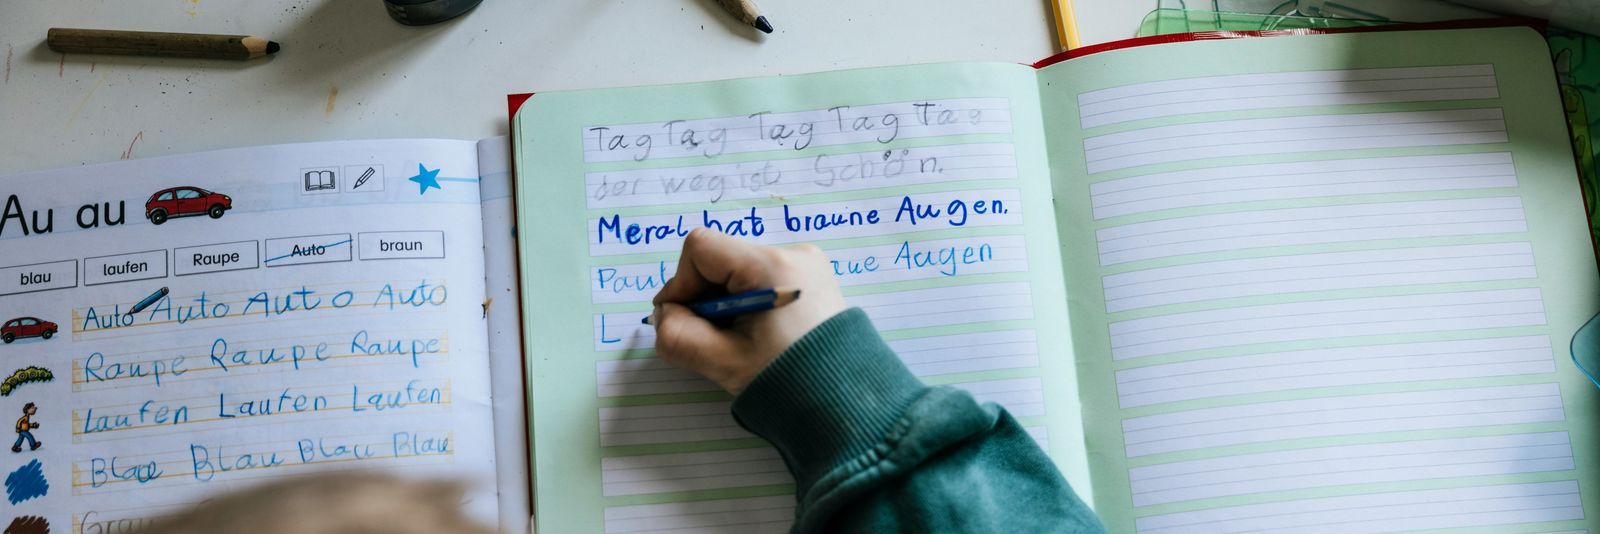 Au au
blau laufen Raupe Auto braun
Auto Auto Auto Auto
Raupe Raupe Raupe
Laufen Laufen Laufen
Blau Blau Blau Blau
Grau
Tag Tag Tag Tag Tag
der weg ist Schön.
Meral hat braune Augen.
Paul Augen
L